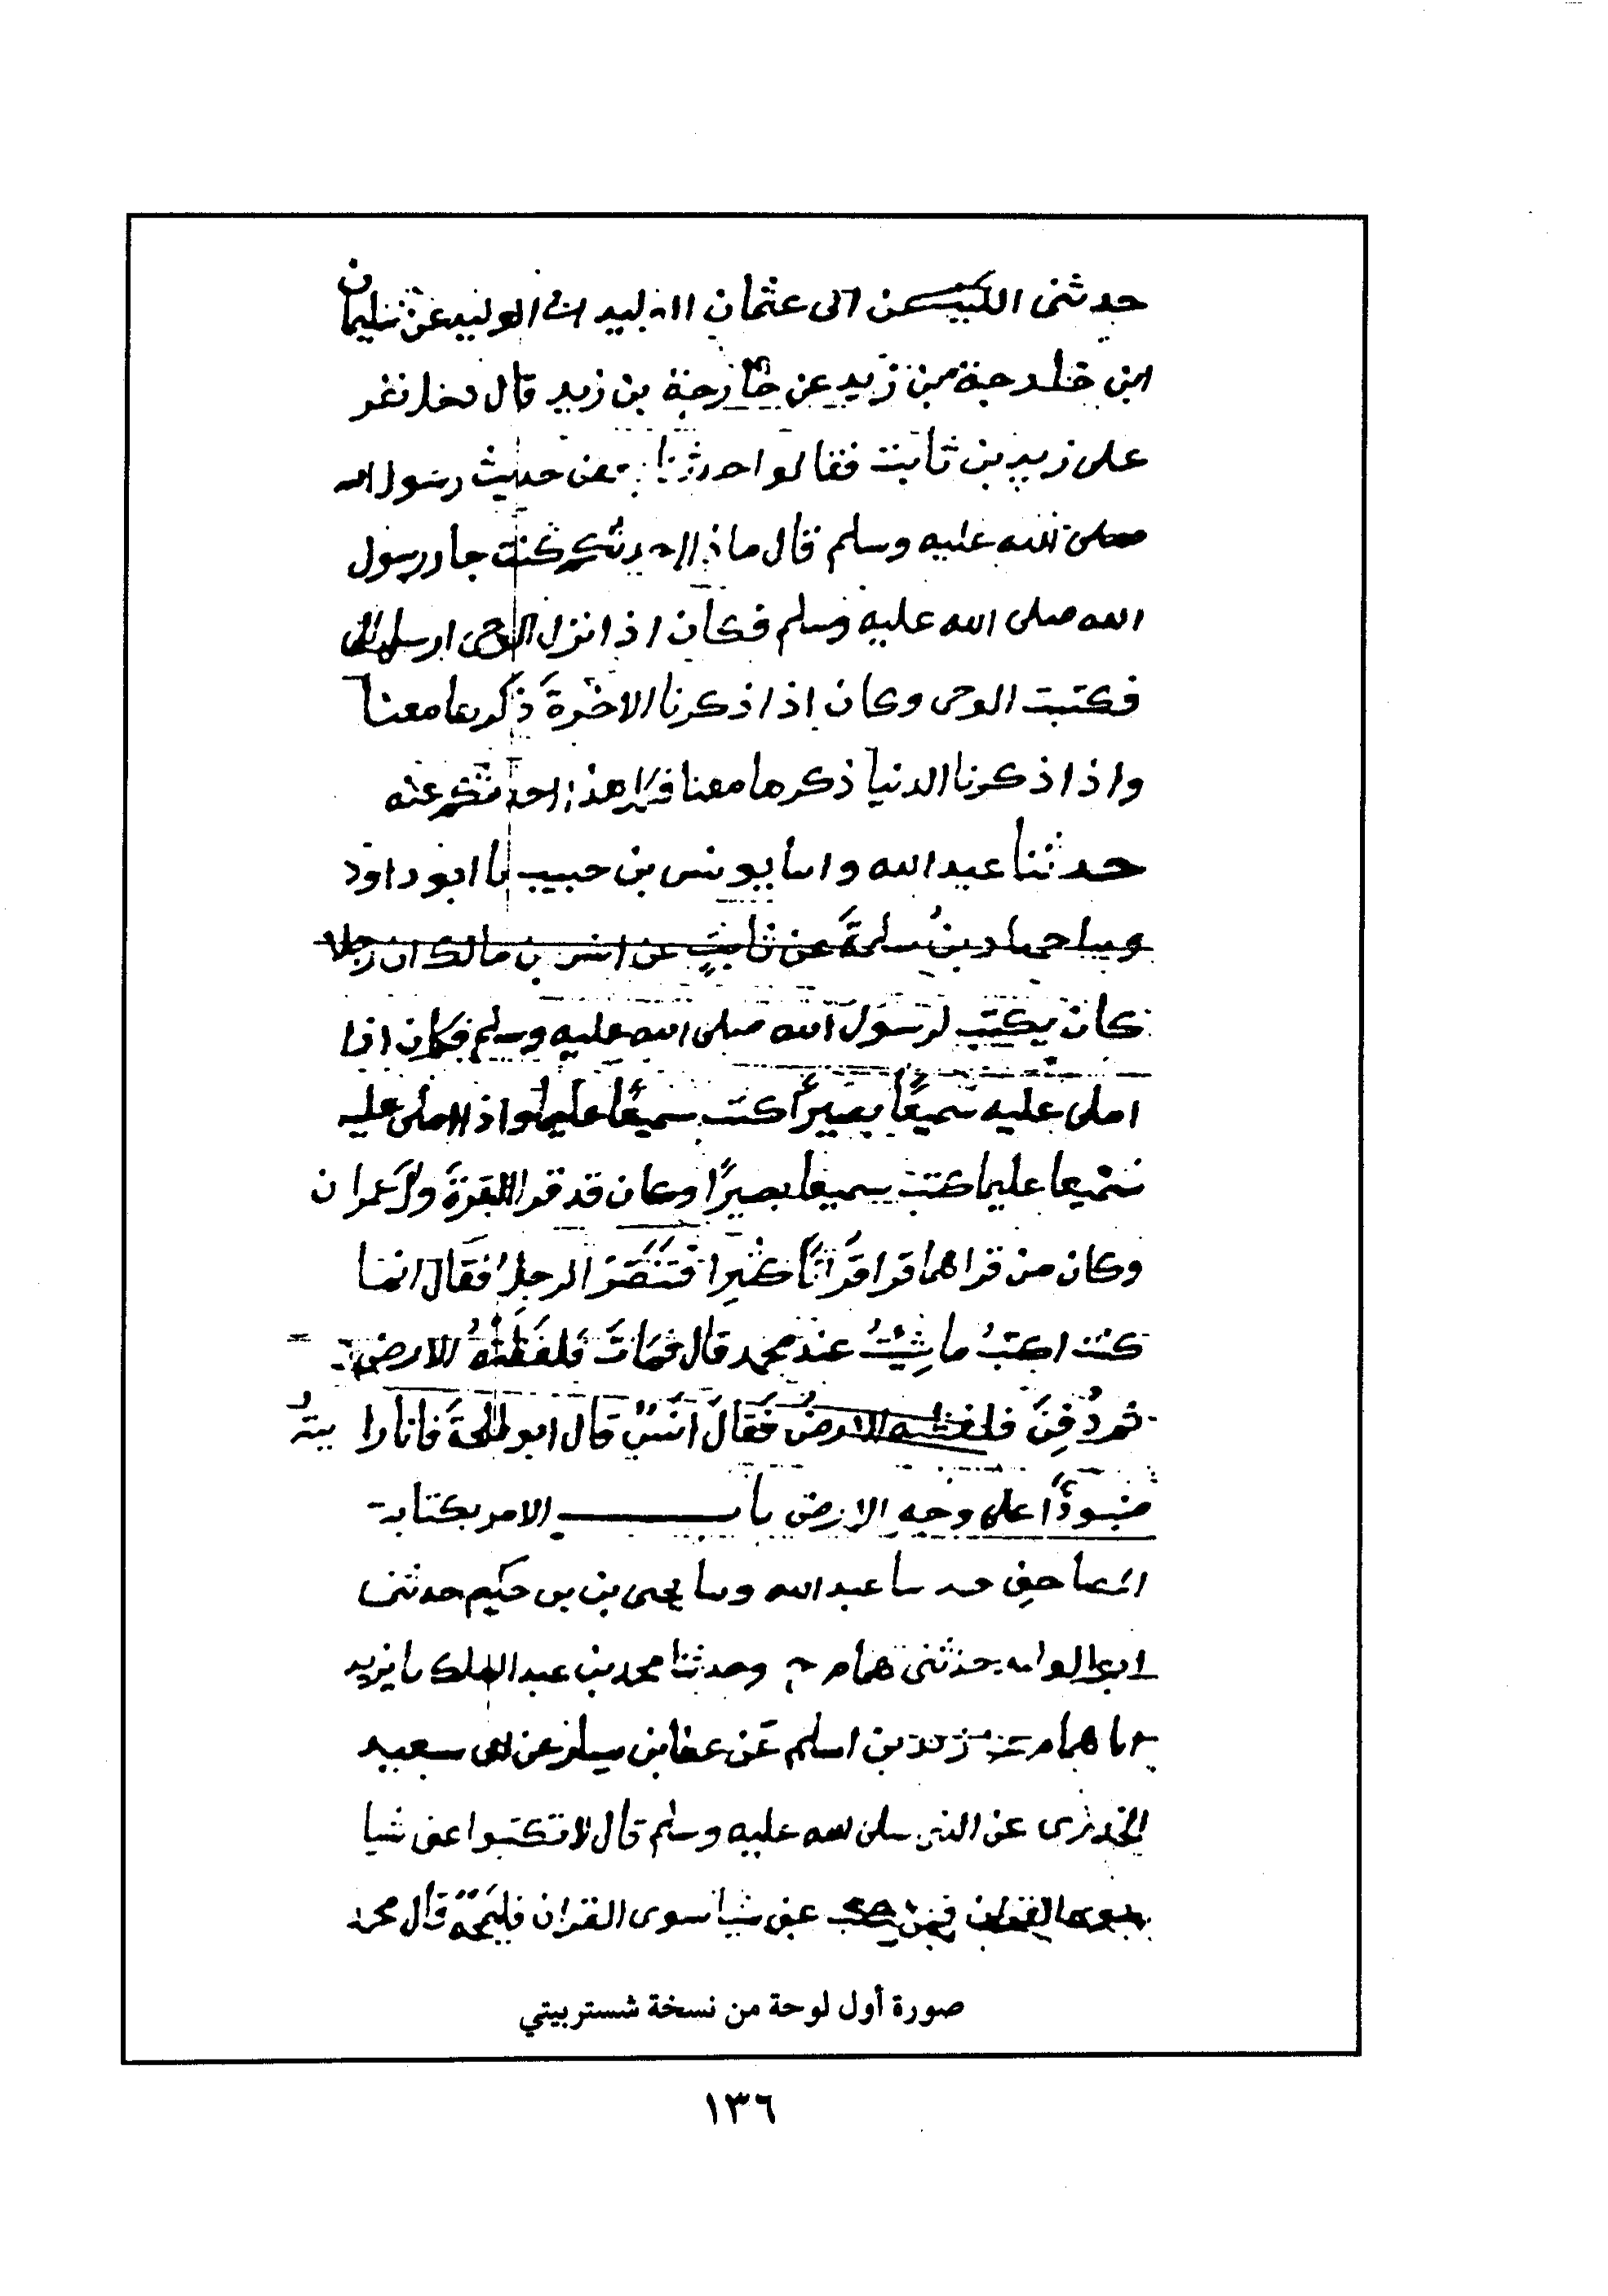 حدثنى الليث عن ابى عثمان الوليد ابن ابى الوليد عن سليمان
ابن خارجة بن زيد عن خارجة بن زيد قال دخل نفر
على زيد بن ثابت فقالوا حدثنا بعض حديث رسول الله
صلى الله عليه وسلم قال ماذا احدثكم كنت جار رسول
الله صلى الله عليه وسلم فكان اذا نزل الوحى ارسل الى
فكتبت الوحى وكان اذا ذكرنا الاخرة ذكرها معنا
واذا ذكرنا الدنيا ذكرها معنا فكل هذا احدثكم عنه
حدثنا عبد الله ونا يونس بن حبيب نا ابو داود
ونا حماد بن سلمة عن ثابت عن انس بن مالك ان رجلا
كان يكتب لرسول الله صلى الله عليه وسلم فكان اذا
املى عليه سميعًا بصيرًا كتب سميعًا عليما واذا املى عليه
سميعا عليما كتب سميعا بصيرًا وكان قد قرا البقرة وال عمران
وكان من قراهما قرا قرانًا كثيرا فتنصر الرجل فقال انما
كنت اكتب ما شِيتُ عند محمد قال فمات فلفظته الارض
ثم دُفِنَ فلفظته الارضُ فقال انسٌ قال ابو طلحة فانا رايتُه
منبوذًا على وجه الارض باب الامر بكتابة
المصاحف حدثنا عبد الله ونا يحيى بن حكيم حدثنى
ابو الوليد حدثنى همام ح وحدثنا محمد بن عبد الملك نا يزيد
انا همام عن زيد بن اسلم عن عطا بن يسار عن ابى سعيد
الخدرى عن النبى صلى الله عليه وسلم قال لا تكتبوا عنى شيا
سوى القران فمن كتب عنى شيا سوى القران فليمحه قال محمد
صورة أول لوحة من نسخة شستربيتي
١٣٦